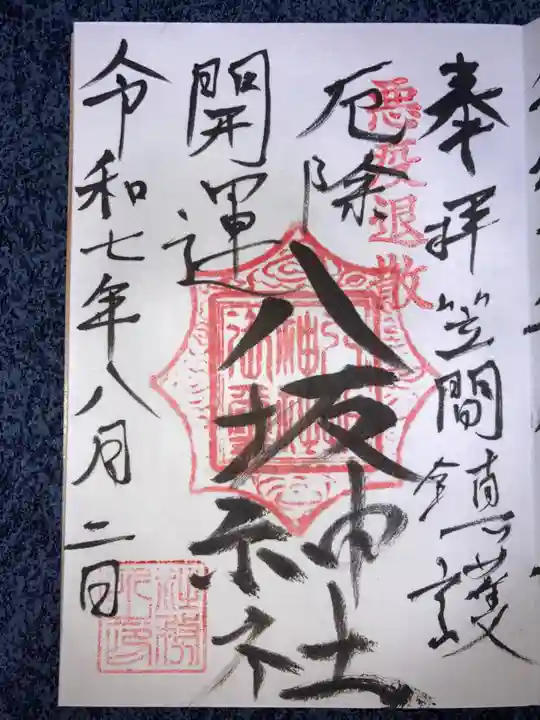 奉拝笠間鎮護
悪疫退散
厄除
八坂神社
開運
令和七年八月二日